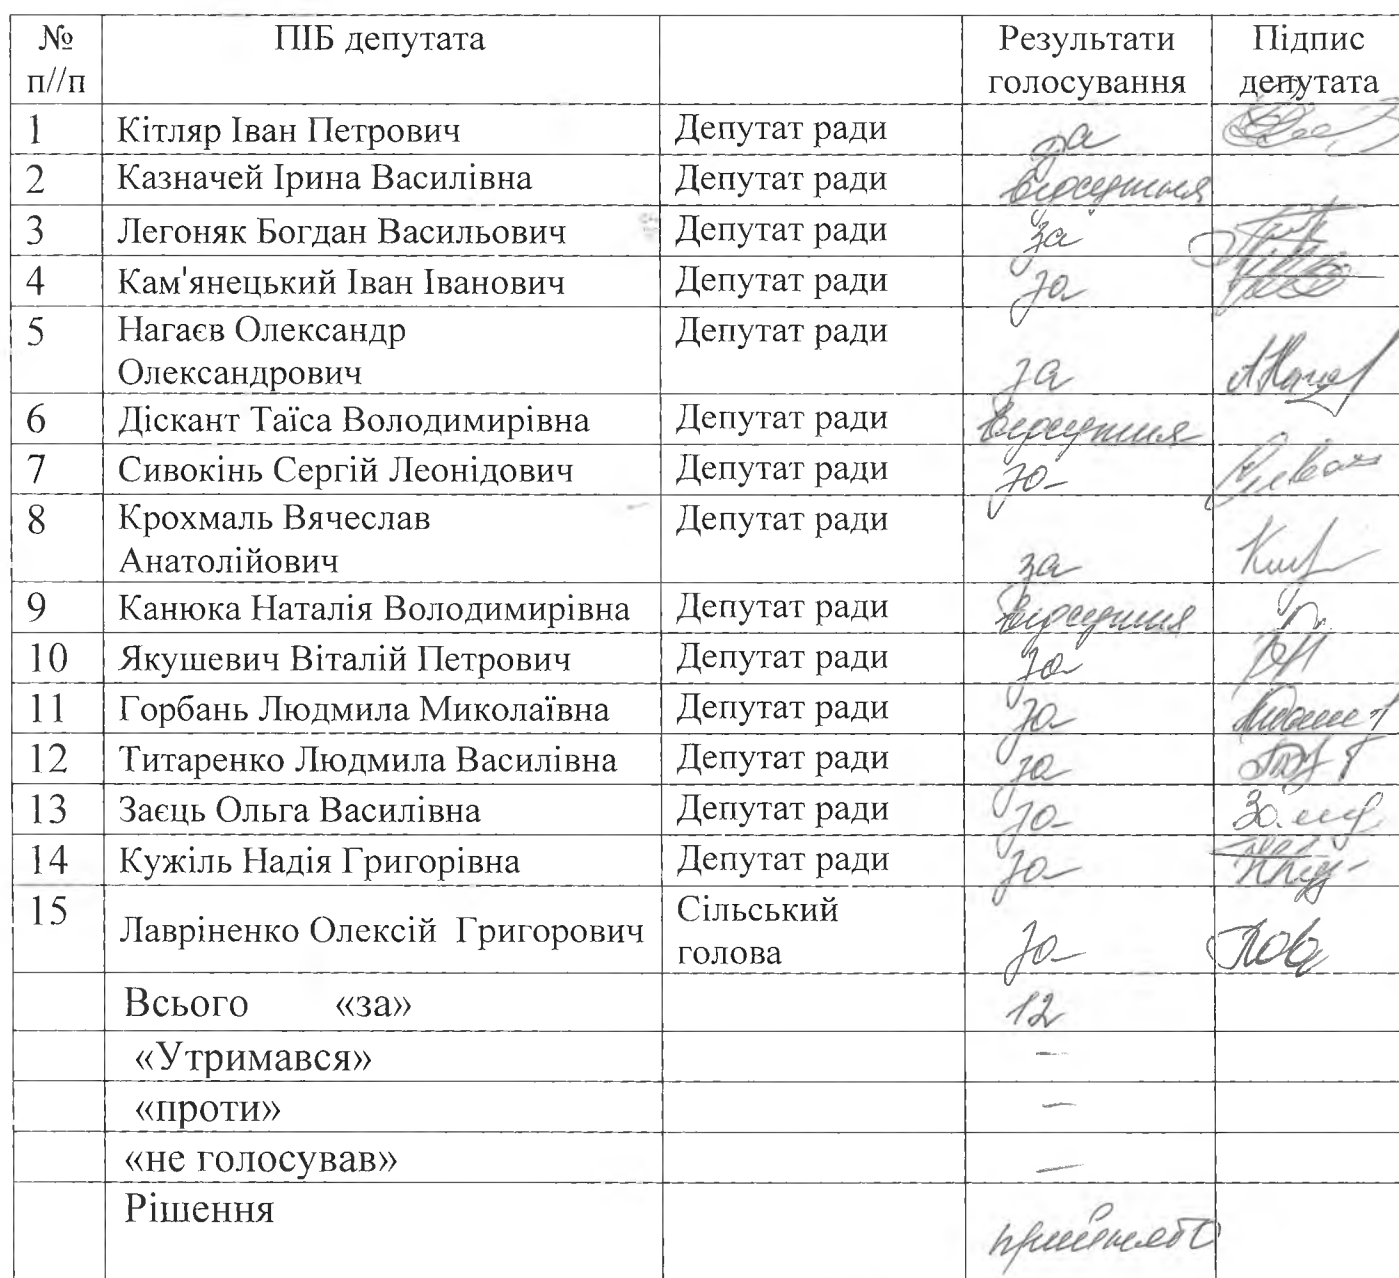 № ПІБ депутата Результати Підпис
п//п голосування депутата
1 Кітляр Іван Петрович Депутат ради за
2 Казначей Ірина Василівна Депутат ради відсутня
3 Легоняк Богдан Васильович Депутат ради за
4 Кам'янецький Іван Іванович Депутат ради за
5 Нагаєв Олександр Депутат ради
Олександрович за
6 Діскант Таїса Володимирівна Депутат ради відсутня
7 Сивокінь Сергій Леонідович Депутат ради за
8 Крохмаль Вячеслав Депутат ради
Анатолійович за
9 Канюка Наталія Володимирівна Депутат ради відсутня
10 Якушевич Віталій Петрович Депутат ради за
11 Горбань Людмила Миколаївна Депутат ради за
12 Титаренко Людмила Василівна Депутат ради за
13 Заєць Ольга Василівна Депутат ради за
14 Кужіль Надія Григорівна Депутат ради за
15 Лавріненко Олексій Григорович Сільський
голова за
Всього «за» 12
«Утримався» –
«проти» –
«не голосував» –
Рішення
прийнято